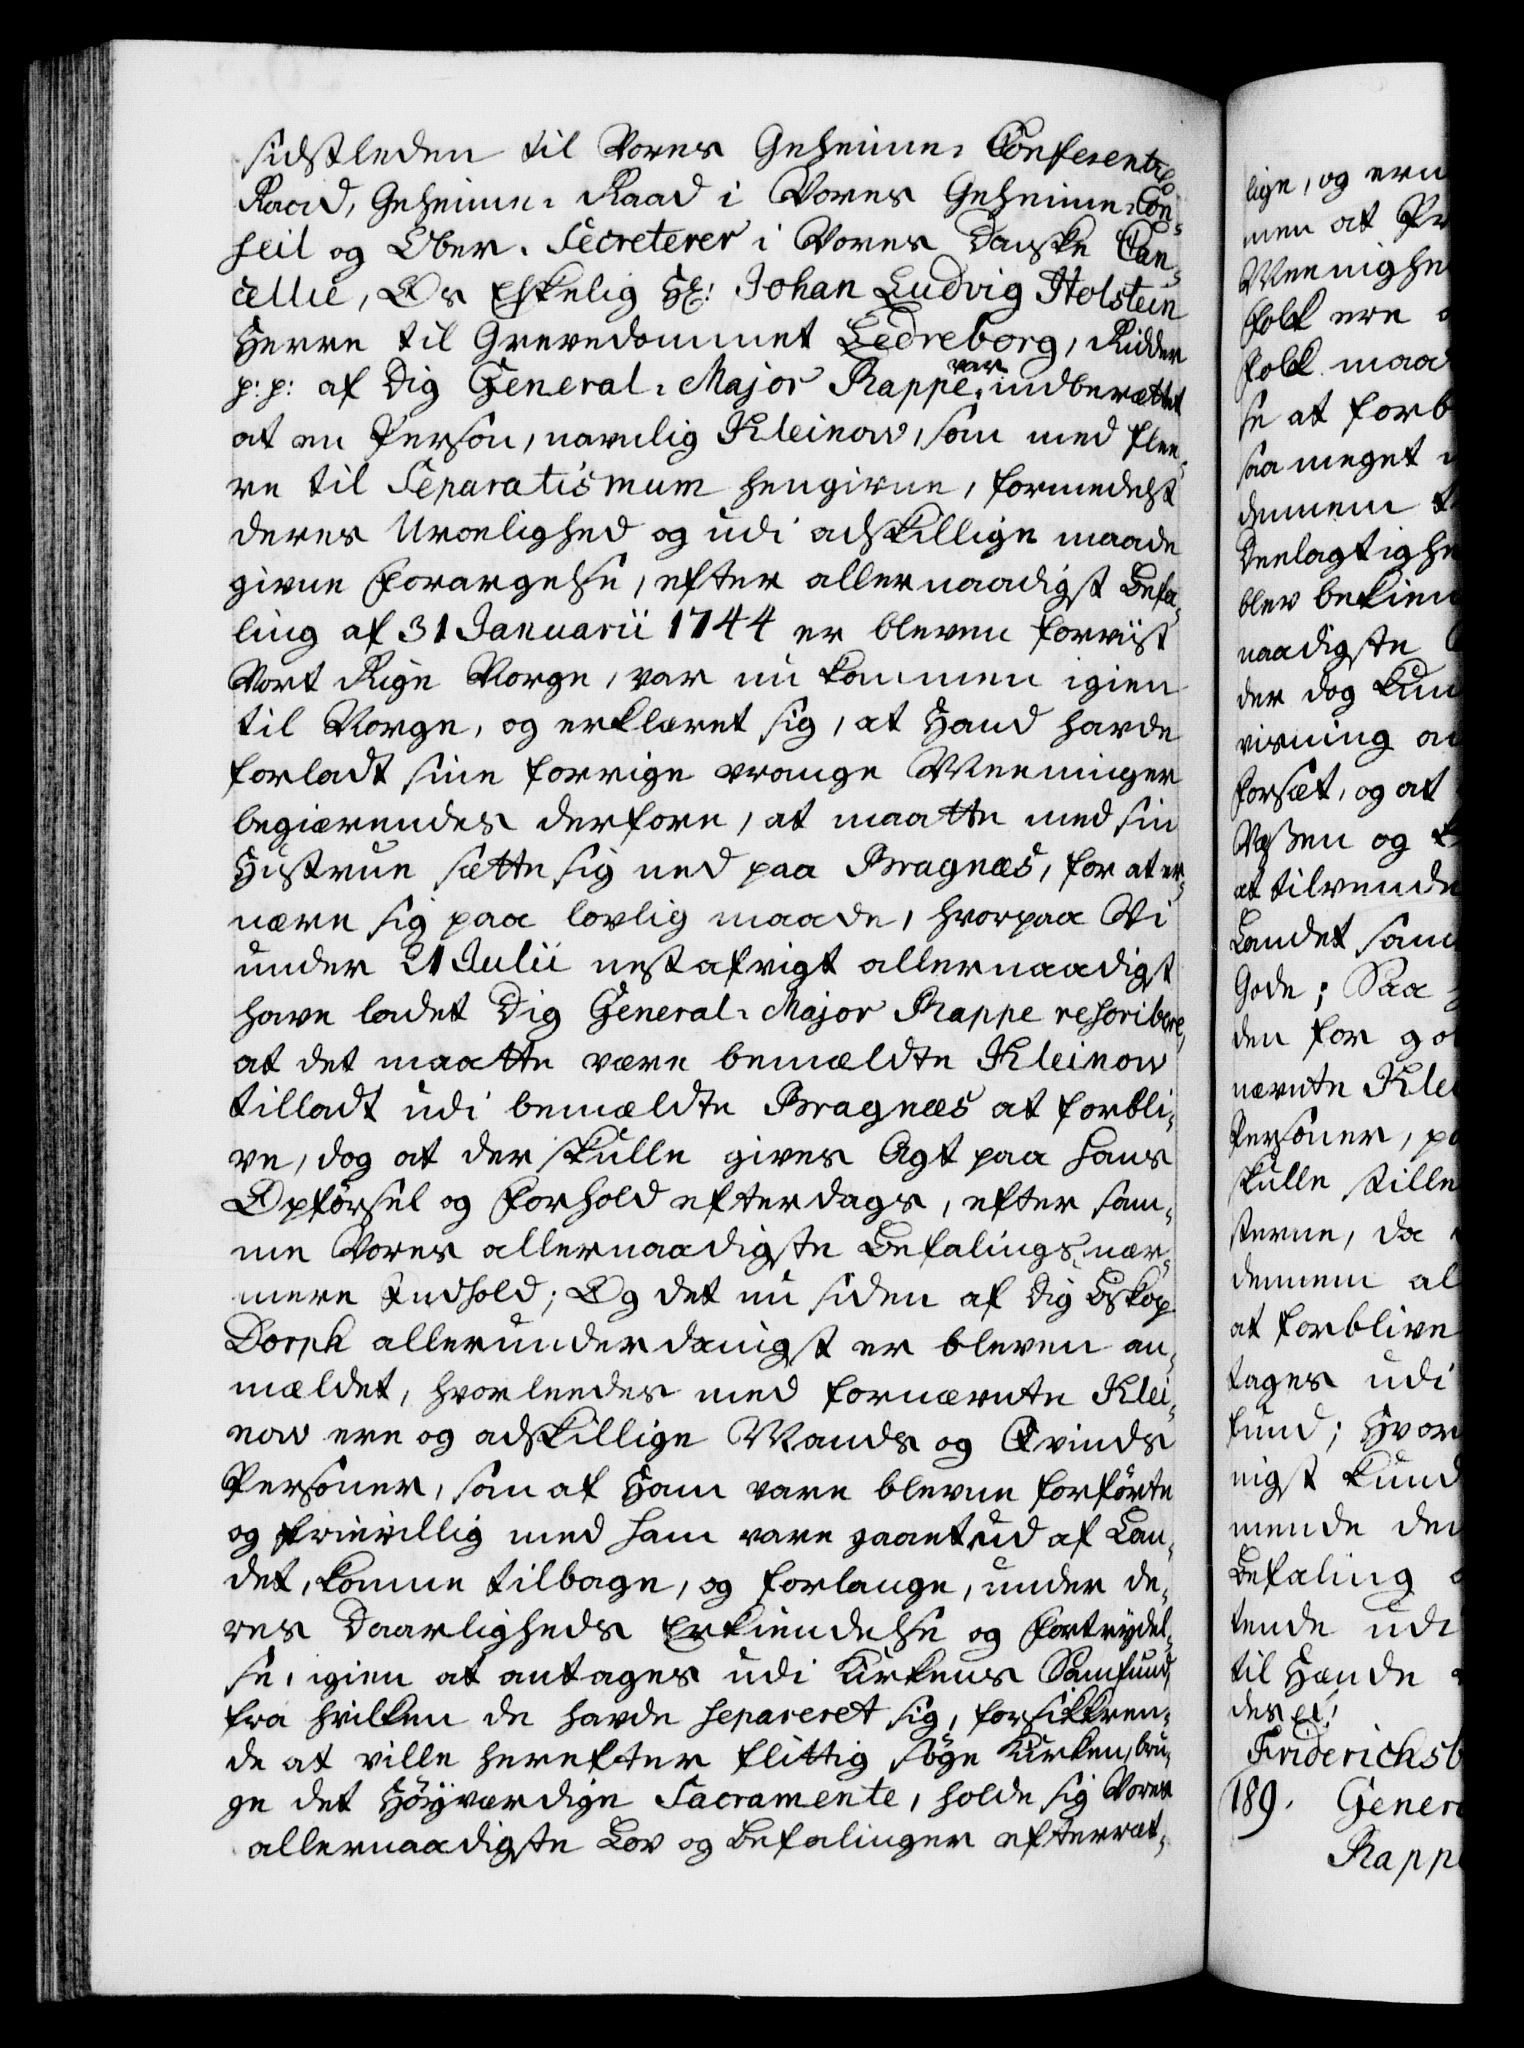 sidstleden til Vores Geheime-Conferentz
Raad, Geheime-Raad i Vores Geheime-Con-
seil og Ober-Secreterer i Vores Danske Can-
cellie, Os Elskelig Hr: Johan Ludvig Holstein
Herre til Grevedommet Ledreborg, Ridder
p: p: af Dig General-Major Rappe var indberættet
at en Person, navnlig Kleinow, som med flee-
re til Separatismum hengivne, formedelst
deres Uroelighed og udi adskillige maade
givne Forargelse, efter allernaadigst Befa-
ling af 31 Januarii 1744 er bleven forviist
Vort Rige Norge, var nu kommen igien
til Norge, og erklæret sig, at Hand havde
forladt sine forrige vrange Meeninger
begiærendes derfore, at maatte med sin
Hustrue sætte sig ned paa Bragnæs, for at er-
nære sig paa lovlig maade, hvorpaa Vi
under 21 Julii nest afvigt allernaadigst
have ladet Dig General-Major Rappe rescribere,
at det maatte være bemældte Kleinow
tilladt udi bemældte Bragnæs at forbli-
ve, dog at der skulle gives Agt paa hans
Opførsel og Forhold efterdags, efter sam-
me Vores allernaadigste Befalings nær-
mere Indhold; Og det nu siden af Dig Biskop
Dorph allerunderdanigst er bleven an-
mældet, hvorleedes med fornævnte Klei-
now ere og adskillige Mands og Qvinds
Personer, som af Ham vare blevne forførte
og frievillig med ham vare gaaet ud af Lan-
det, komne tilbage, og forlange, under de-
res Daarligheds Erkiendelse og Fortrydel-
se, igien at antages udi Kirkens Samfund,
fra hvilken de havde separeret sig, forsikkren-
de at ville herefter flittig søge Kirken, bru-
ge det Høyværdige Sacramente, holde sig Vores
allernaadigste Lov og Befalinger efterret-
lige, og ere
men at Pr
Meenighe
Folk ere
Folk maa
se at forb
saa meget
dennem
Deelagtighe
blev bekien
naadigste
der dog kun
visning
forsæt, og at
Væsen og
at tilvende
Landet sam
Gode; Saa
den for go
nævnte Klei
Personer, pa
skulle stille
sterne, da
dennem al
at forblive
tages udi
fund; Hvor
nigst kund
mende den
Befaling
tende udi
til Hænde
des
Friderichsb
189. Genera
Rappe